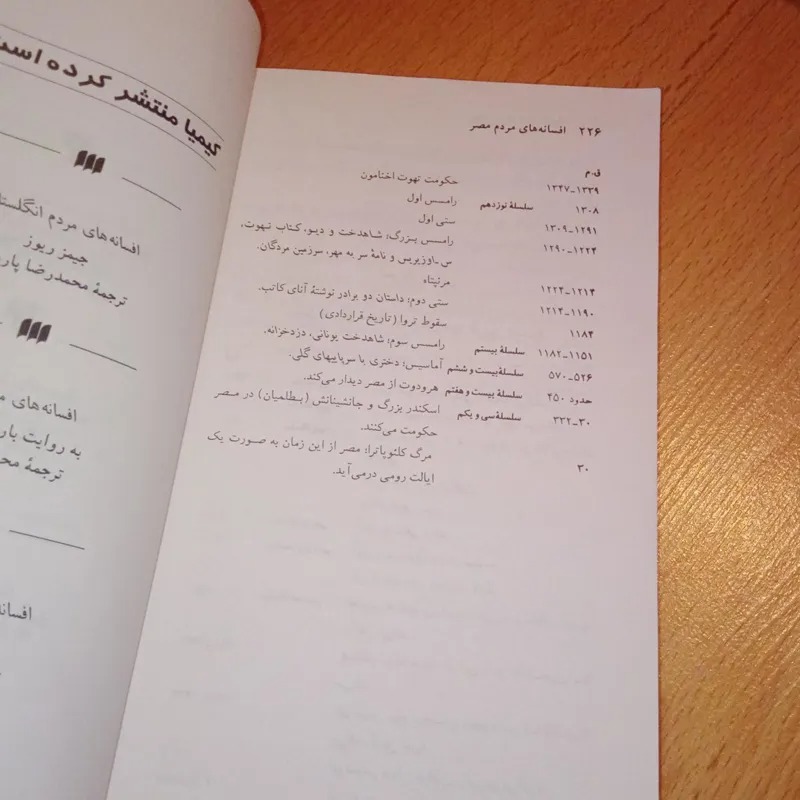 ۲۲۶ افسانه‌های مردم مصر
ق.م
۱۳۳۹ـ۱۳۴۷ حکومت تهوت اخنامون
۱۳۰۸ سلسلهٔ نوزدهم رامسس اول
۱۲۹۱ـ۱۳۰۹ ستی اول
۱۲۲۴ـ۱۲۹۰ رامسس بزرگ؛ شاهدخت و دیو، کتاب تهوت،
س ـ اوزیریس و نامهٔ سر به مهر، سرزمین مردگان.
۱۲۱۴ـ۱۲۲۴ مرنپتاه
۱۱۹۰ـ۱۲۱۴ ستی دوم؛ داستان دو برادر نوشتهٔ آنای کاتب.
۱۱۸۴ سقوط تروا (تاریخ قراردادی)
۱۱۵۱ـ۱۱۸۲ سلسلهٔ بیستم رامسس سوم؛ شاهدخت یونانی، دزدخزانه.
۵۲۶ـ۵۷۰ سلسلهٔ بیست و ششم آماسیس؛ دختری با سرپاییهای گلی.
حدود ۴۵۰ سلسلهٔ بیست و هفتم هرودوت از مصر دیدار می‌کند.
۳۰ـ۳۳۲ سلسلهٔ سی و یکم اسکندر بزرگ و جانشینانش (بطلمیان) در مصر
حکومت می‌کنند.
۳۰ مرگ کلئوپاترا؛ مصر از این زمان به صورت یک
ایالت رومی درمی‌آید.
کیمیا منتشر کرده است
افسانه‌های مردم انگلستا
جیمز ریوز
ترجمهٔ محمدرضا
افسانه‌های
به روایت
ترجمهٔ